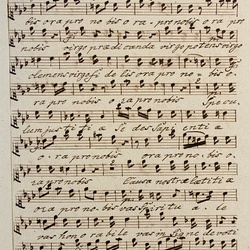 bis ora pro no bis o ra pro nobis o ra pro
nobis virgo prædicanda virgo potens virgo
clemens virgo fi de lis ora pro no bis
ra pro nobis o ra pro nobis Specu
lum justi ti a Se des Sapi enti a
o ra pro nobis ora pro no bis
ra pro nobis Causa nostræ læ titi a
ora pro no bis vas Spi ri tu a le
vas hono ra bi le vas in Signe de voti